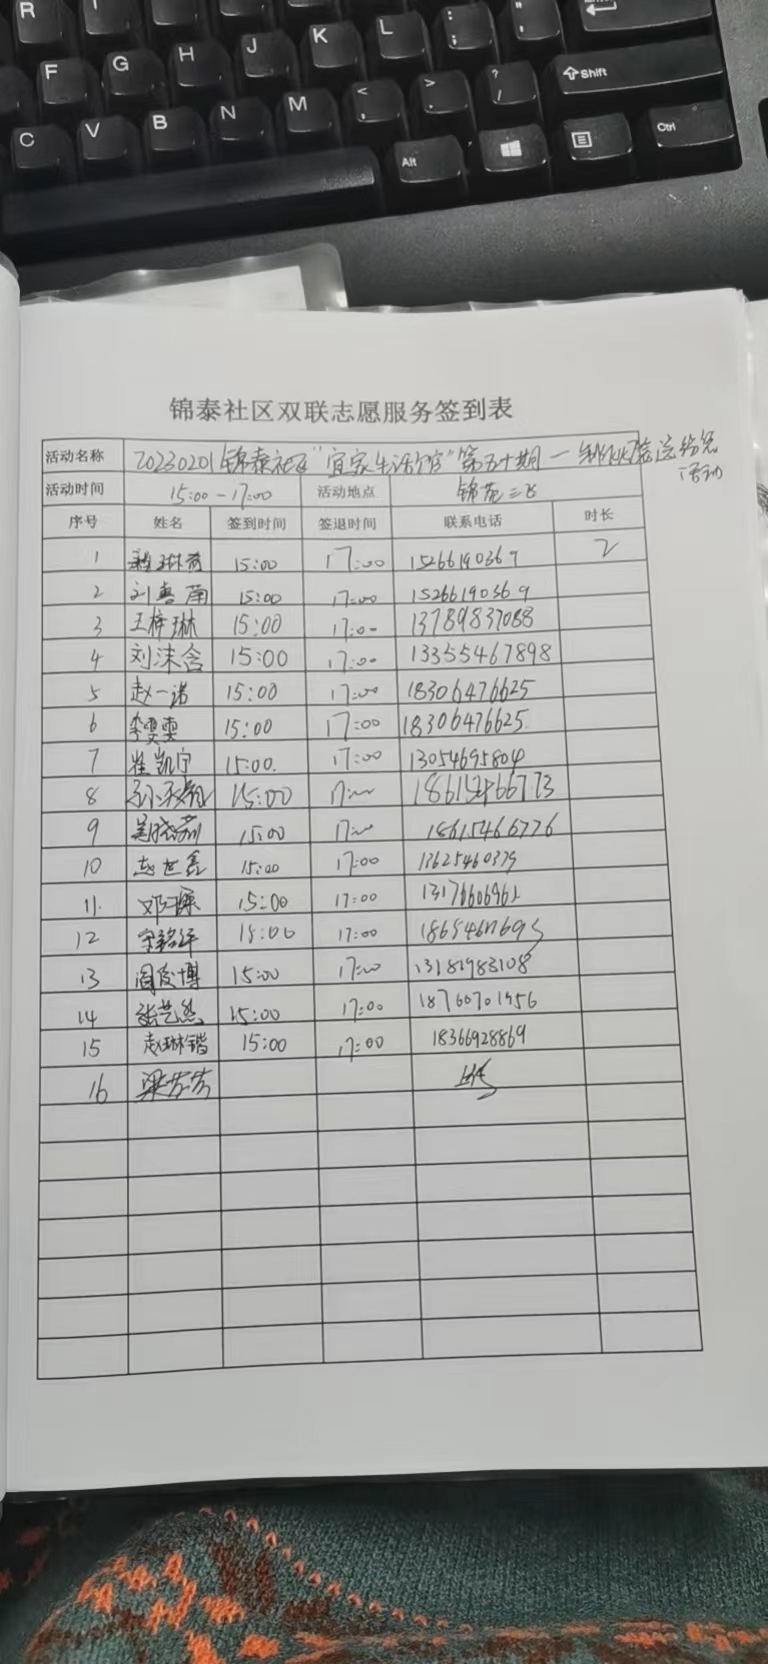 R
F G H J K L : ;
" '
Shift
C V B N M < , > . ? /
Alt
Ctrl
锦泰社区双联志愿服务签到表
活动名称 20230201锦泰社区"宜家生活馆"第五十期一
活动
活动时间 15:00-17:00 活动地点 锦苑三
序号 姓名 签到时间 签退时间 联系电话 时长
1 15:00 17:00 2
2 刘 15:00 17:00 15266190369
3 王梓琳 15:00 17:00 13789837088
4 刘沫含 15:00 17:00 13355467898
5 赵一诺 15:00 17:00 18306476625
6 李雯雯 15:00 17:00 18306476625
7 崔凯宁 15:00 17:00 13054695804
8 15:00 17:00
9 15:00 17:00 18615466776
10 15:00 17:00
11 邓 15:00 17:00 13176606962
12 15:00 17:00
13 15:00 17:00 13181983108
14 张艺然 15:00 17:00
15 赵琳锴 15:00 17:00 18366928869
16 梁芳芳